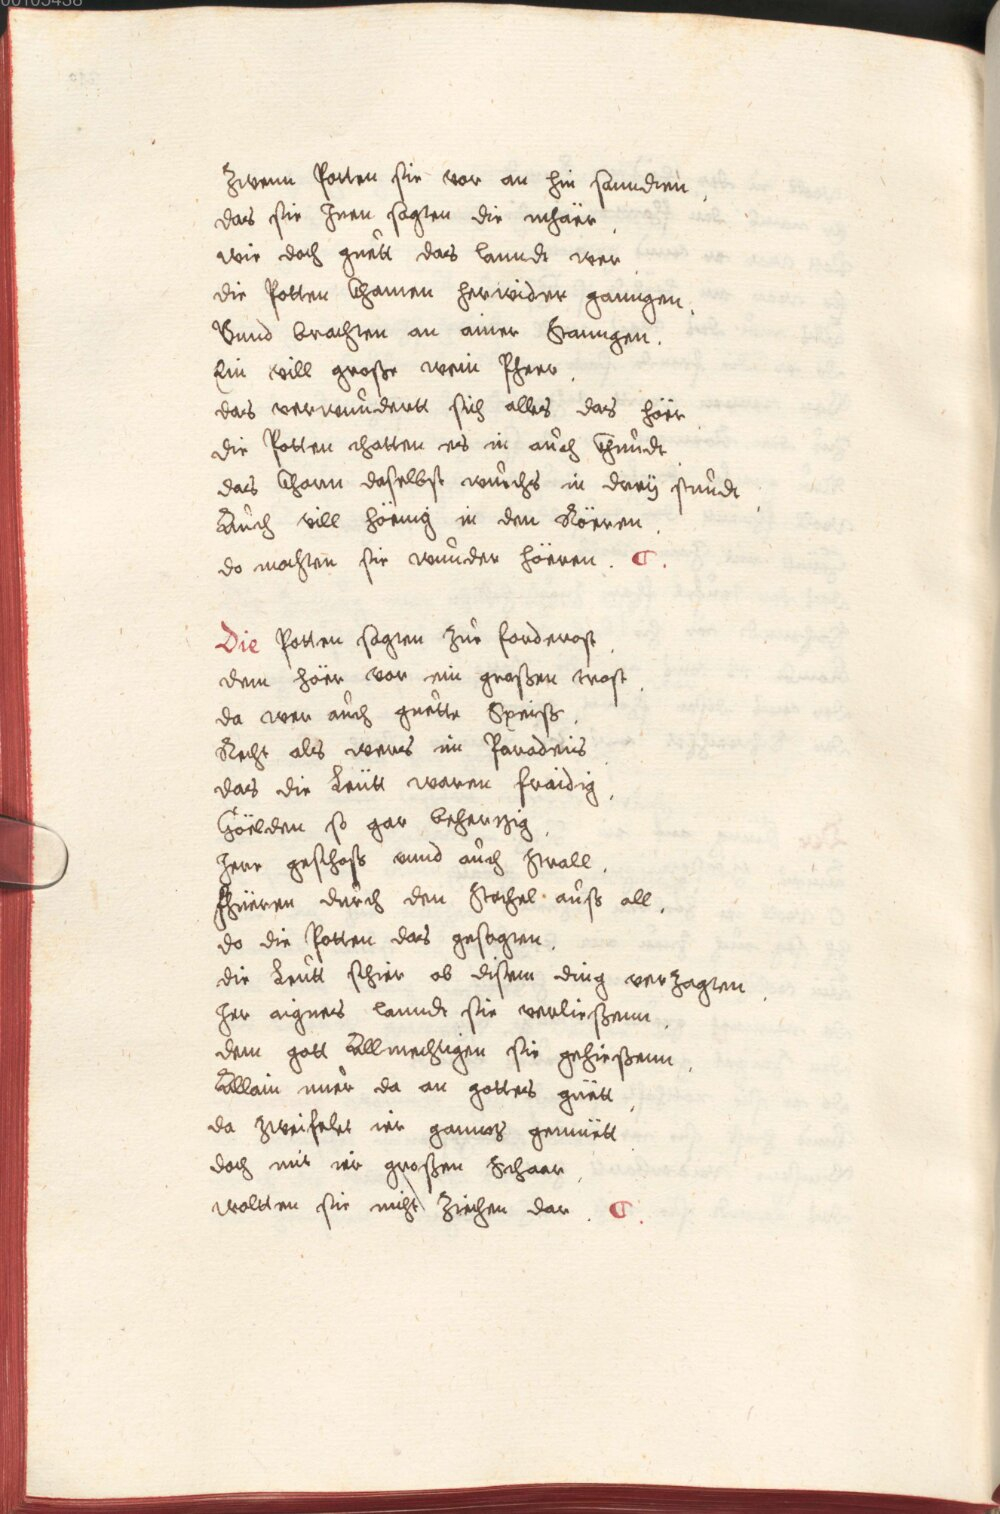 Zwenn Potten sie vor an hin sanndten,
das sie Inen sagten die mhäer,
wie doch guett das lanndt wer
die Potten khamen herwider ganngen,
Vnnd brachten an ainer Stanngen.
Ein vill große wein Pheer,
das verwundertt sich alles das höer
die Potten thatten es in auch khundt
das khorn daselbst wuechs in dreÿ stundt,
Auch vill höenig in den Röeren,
do mochten sie wunder höeren. C.
Die Potten sagten zue forderost,
dem höer vor ein großen trost,
da wer auch guette Speiß,
Recht als wers im Paradeiis
das die Leütt waren fraidig,
Höelden so gar behertzig,
Irer geschoß vnnd auch Strall,
Fhüeren durch den Stachel auß all,
do die Potten das gesagten,
die Leutt schier ob disem ding verzagten,
Ier aignes lanndt sie verließenn,
dem gott Allmechtigen sie gehießenn,
Allain nuer da an gottes güett,
da zweifelet ier ganntz gemüett
doch mit ier großen Schaer,
woltten sie nicht ziechen dar. C.